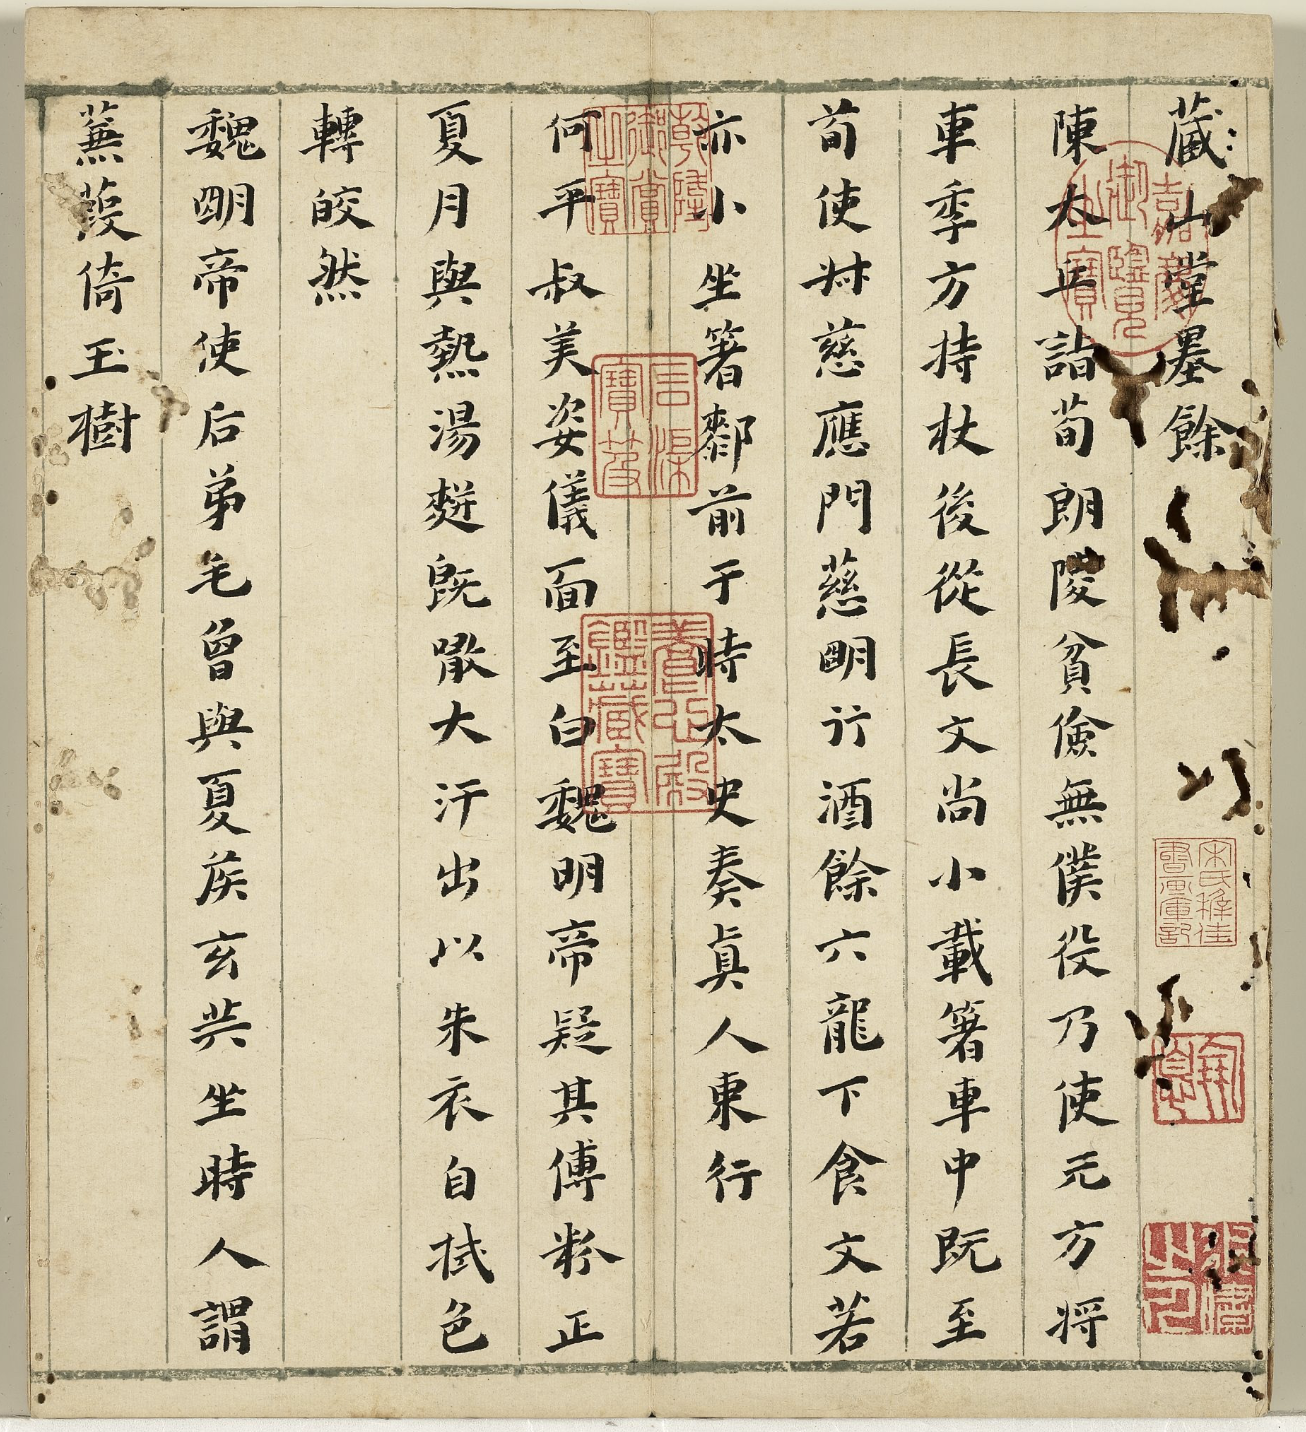 藏山堂墨餘
陳太丘詣荀朗陵貧儉無僕役乃使元方將
車季方持杖後從長文尚小載箸車中既至
荀使叔慈應門慈明行酒餘六龍下食文若
亦小坐箸鄰前于時太史奏眞人東行
何平叔美姿儀面至白魏明帝疑其傅粉正
夏月與熱湯麪既噉大汗出以朱衣自拭色
轉皎然
魏明帝使后弟毛曾與夏侯玄共坐時人謂
蒹葭倚玉樹
乾隆御賞之寶
嘉慶御覽之寶
石渠寶笈
養心殿鑑藏寶